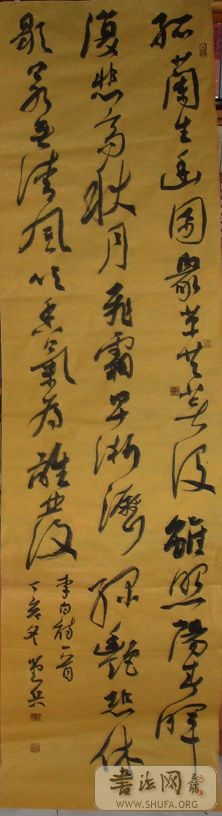 孤蘭生幽園眾草共蕪沒雖照陽春暉
復悲高秋月飛霜早淅瀝綠艷恐休
歇若無清風吹香氣為誰發
李白詩一首
丁亥冬
書法网
WWW.SHUFA.ORG